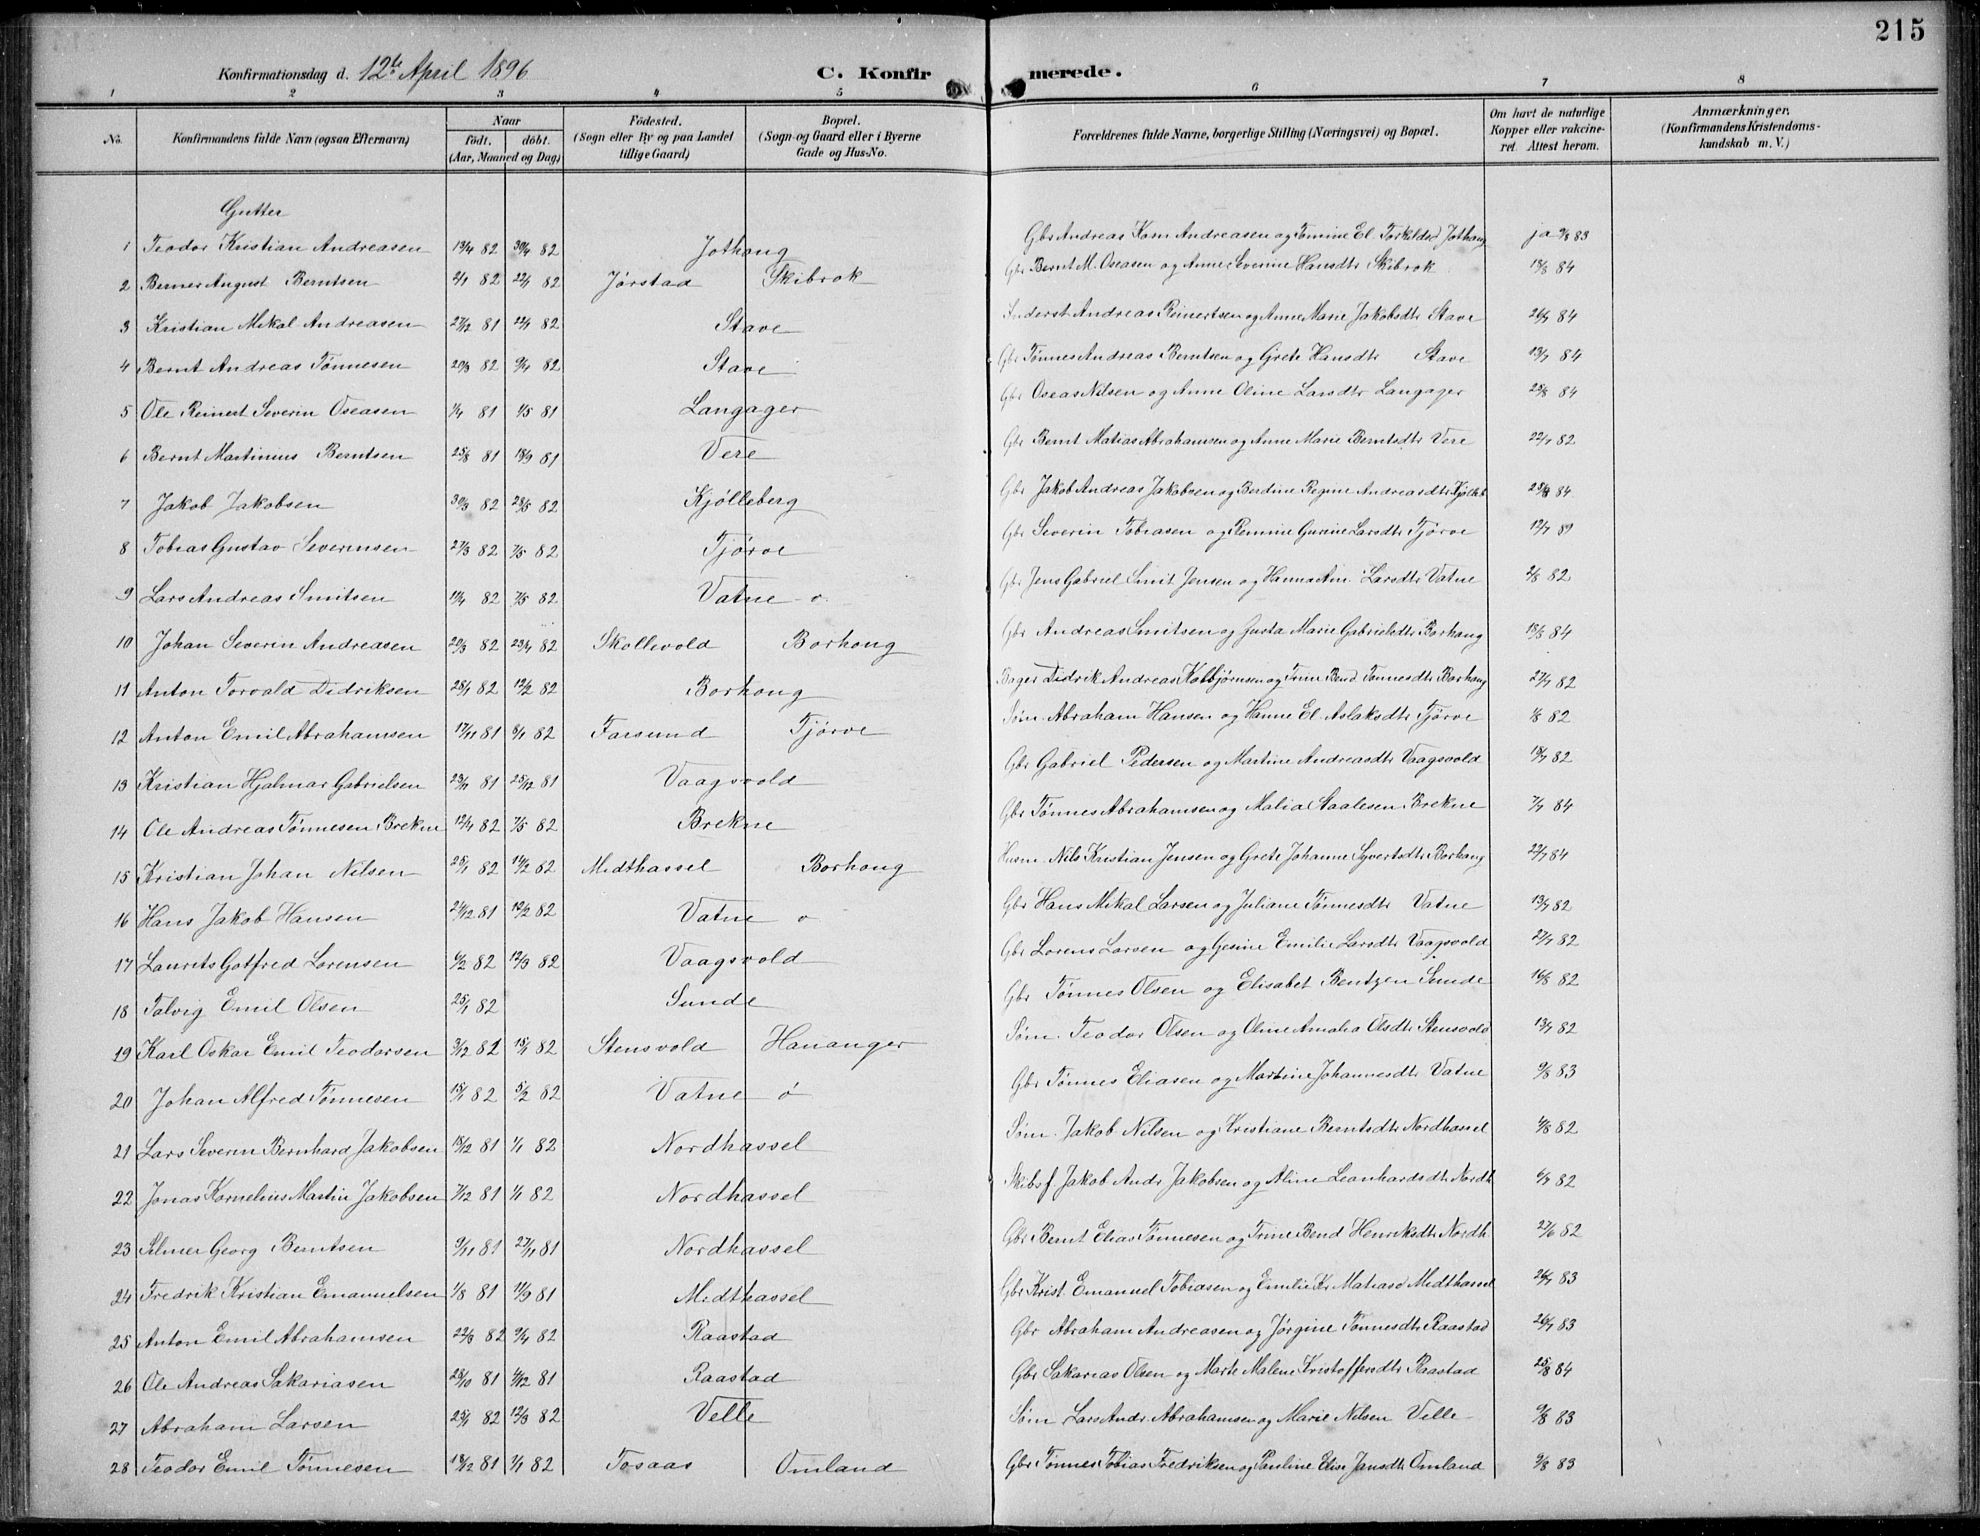 215
Konfirmationsdag d. 12te April 1896 C. Konfirmerede.
1 2 3 4 5 6 7 8
No. Konfirmandens fulde Navn (ogsaa Efternavn) Naar født. døbt. (Aar, Maaned og Dag) Fødested. (Sogn eller By og paa Landet tillige Gaard) Bopæl. (Sogn og Gaard eller i Byerne Gade og Hus-No. Forældrenes fulde Navne, borgerlige Stilling (Næringsvei) og Bopæl. Om havt de naturlige Kopper eller vakcineret. Attest herom. Anmærkninger. (Konfirmandens Kristendomskundskab m. V.)
Gutter
1 Teodor Kristian Andreasen 13/4 82 30/4 82 Jothang Gbr Andreas Korn Andreasen og Tomine El. Torkildsd Jothang ja 9/8 83
2 Berner August Berntsen 2/1 82 22/1 82 Jørstad Skibrok Gbr Bernt M. Oseasen og Anne Severine Hansdtr Skibrok 18/8 84
3 Kristian Mikal Andreasen 27/12 81 22/1 82 Stave Andreas Reinertsen og Anne Marie Jakobsdtr Stave 26/7 84
4 Bernt Andreas Tønnesen 20/3 82 9/4 82 Stave Gbr Tønnes Andreas Berntsen og Grete Hansdtr Stave 13/7 84
5 Ole Reinert Severin Oseasen 1/4 81 1/5 81 Langager Gbr Oseas Nilsen og Anne Oline Larsdtr Langager 25/8 84
6 Bernt Martinius Berntsen 25/8 81 18/9 81 Vere Gbr Bernt Matias Abrahamsen og Anne Marie Berntsdtr Vere 22/7 82
7 Jakob Jakobsen 30/3 82 28/5 82 Kjølleberg Gbr Jakob Andreas Jakobsen og Berdine Regine Andreasdtr Kjølleb 25/8 84
8 Tobias Gustav Severinsen 27/3 82 7/5 82 Tjørve Gbr Severin Tobiasen og Remine Gurine Larsdtr Tjørve 12/7 89
9 Lars Andreas Smitsen 14/4 82 7/5 82 Vatne o Gbr Jens Gabriel Smit Jensen og Hanna Ane Larsdtr Vatne 2/8 82
10 Johan Severin Andreasen 20/3 82 23/4 82 Skollevold Borhong Gbr Andreas Smitsen og Gusta Marie Gabrielsdtr Borhang 18/8 84
11 Anton Torvald Didriksen 28/1 82 12/2 82 Borhong Bager Didrik Andreas Kolbjørnsen og Trine Bend. Tønnesdtr Borhang 27/7 82
12 Anton Emil Abrahamsen 17/11 81 8/1 82 Farsund Tjørve Søm. Abraham Hansen og Hanne El. Aslaksdtr Tjørve 1/8 82
13 Kristian Hjalmar Gabrielsen 23/11 81 25/12 81 Vaagsvold Gbr Gabriel Pedersen og Martine Andreasdtr Vaagsvold 18/7 82
14 Ole Andreas Tønnesen Brekne 12/4 82 7/5 82 Brekne Gbr Tønnes Abrahamsen og Malia Staalesen Brekne 7/7 84
15 Kristian Johan Nilsen 25/1 82 14/2 82 Midthassel Borhong Husm. Nils Kristian Jensen og Grete Johanne Syvertsdtr Borhang 22/7 84
16 Hans Jakob Hansen 24/12 81 12/2 82 Vatne o Gbr Hans Mikal Larsen og Juliane Tønnesdtr Vatne 13/7 82
17 Laurits Gotfred Lorensen 6/2 82 12/3 82 Vaagsvold Gbr Lorens Larsen og Gesine Emilie Larsdtr Vaagsvold 27/7 82
18 Talvig Emil Olsen 25/1 82 Sunde Gbr Tønnes Olsen og Elisabet Bentzen Sunde 16/8 82
19 Karl Oskar Emil Teodorsen 3/12 81 15/1 82 Stensvold Hananger Søm. Teodor Olsen og Oline Amalia Olsdtr Stensvold 13/7 82
20 Johan Alfred Tønnesen 15/1 82 5/2 82 Vatne o Gbr Tønnes Eliasen og Martine Johannesdtr Vatne 9/8 83
21 Lars Severin Bernhard Jakobsen 18/12 81 1/1 82 Nordhassel Søm. Jakob Nilsen og Kristiane Berntsdtr Nordhassel 4/8 82
22 Jonas Kornelius Martin Jakobsen 7/12 81 1/1 82 Nordhassel Skibsf Jakob Andr Jakobsen og Aline Leonhardsdtr Nordh 6/7 82
23 Selmer Georg Berntsen 9/11 81 27/11 81 Nordhassel Gbr Bernt Elias Tønnesen og Trine Bend Henriksdtr Nordh 27/6 82
24 Fredrik Kristian Emanuelsen 1/8 81 11/9 81 Midthassel Gbr Krist. Emanuel Tobiasen og Emilie Kr. Matiasd Midthassel 26/7 83
25 Anton Emil Abrahamsen 22/3 82 9/4 82 Raastad Gbr Abraham Andreasen og Jørgine Tønnesdtr Raastad 26/7 83
26 Ole Andreas Sakariasen 28/10 81 4/12 81 Raastad Gbr Sakarias Olsen og Marte Malene Kristoffersdtr Raastad 25/8 84
27 Abraham Larsen 25/1 82 12/3 82 Velle Søm Lars Andr. Abrahamsen og Marie Nilsen Velle 9/8 83
28 Teodor Emil Tønnesen 13/12 81 1/1 82 Tosaas Omland Gbr Tønnes Tobias Fredriksen og Pauline Elise Jansdtr Omland 9/8 83